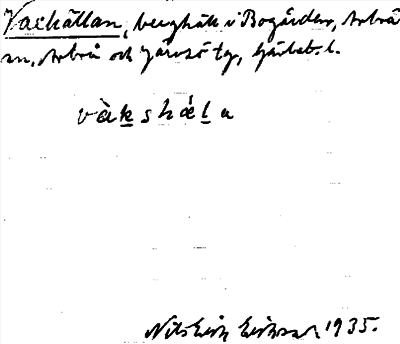 Vackällan, berghäll i Bogården, Arbrå
sn, Arbrå och Järvsö tg, Gävleb. l.
vàkshǽla
Nils Erik Eriksson 1935.